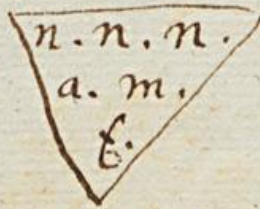 n. n. n.
a. m.
t.